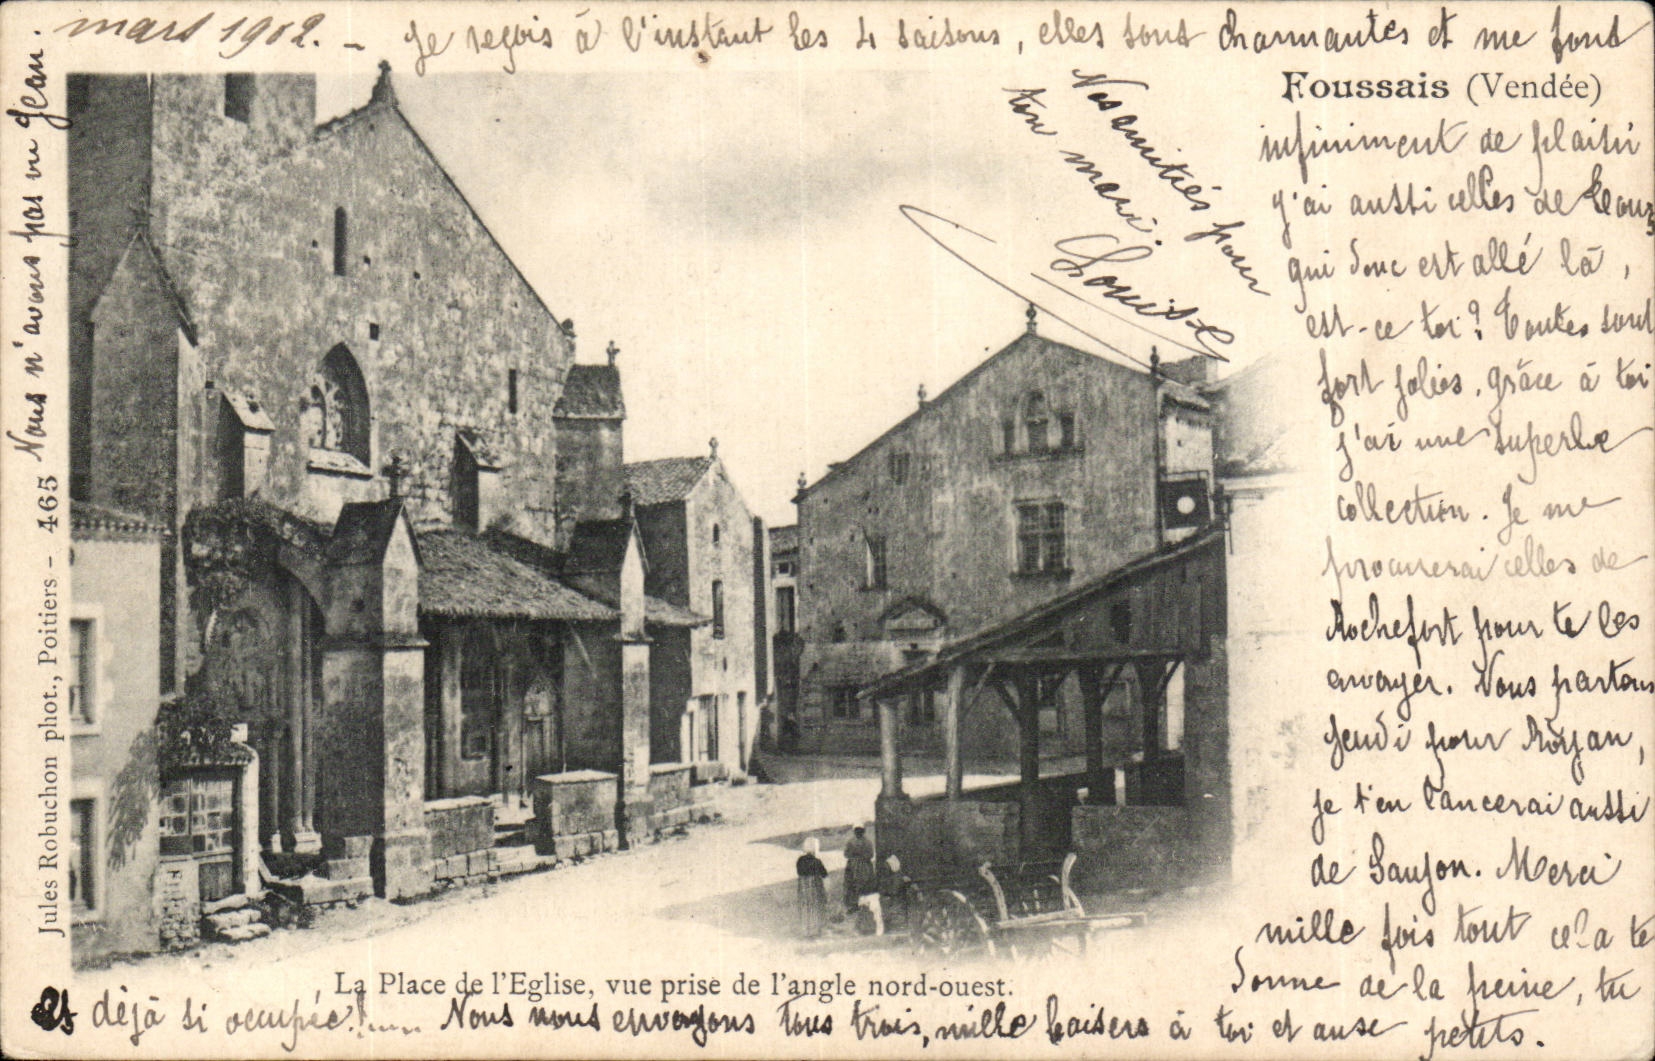 mars 1902. — Je reçois à l'instant les 4 saisons, elles sont charmantes et me font
Foussais (Vendée)
infiniment de plaisir
j'ai aussi celles de Tours
qui donc est allé là,
est-ce toi? Toutes sont
fort jolies, grâce à toi
j'ai une superbe
collection. Je me
procurerai celles de
Rochefort pour te les
envoyer. Nous partons
Jeudi pour Royan,
je t'en lancerai aussi
de Saujon. Merci
mille fois tout cela te
donne de la peine, tu
es déjà si occupée!.... Nous nous envoyons tous trois, mille baisers à toi et aux petits.
Nos amitiés pour
ton mari.
Louise
Nous n'avons pas vu Jean.
Jules Robuchon phot., Poitiers – 465
La Place de l'Eglise, vue prise de l'angle nord-ouest.